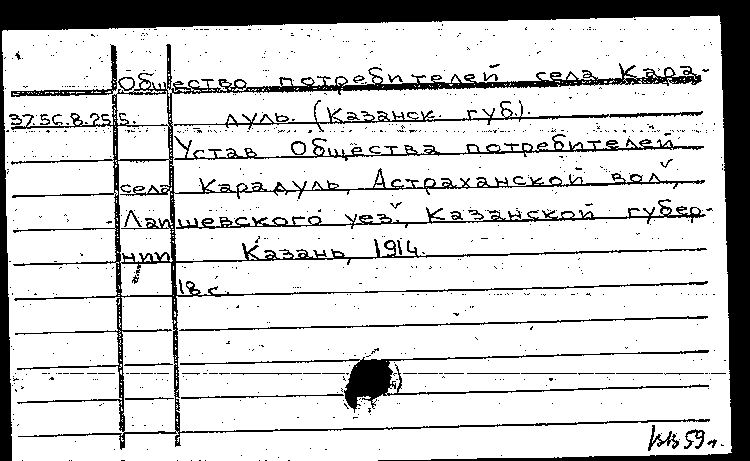 Общество потребителей села Кара-
37.56.8.255. дуль. (Казанск. губ.).
Устав Общества потребителей
села Карадуль, Астраханской вол.,
Лаишевского уез., Казанской губер-
нии. Казань, 1914.
18 с.